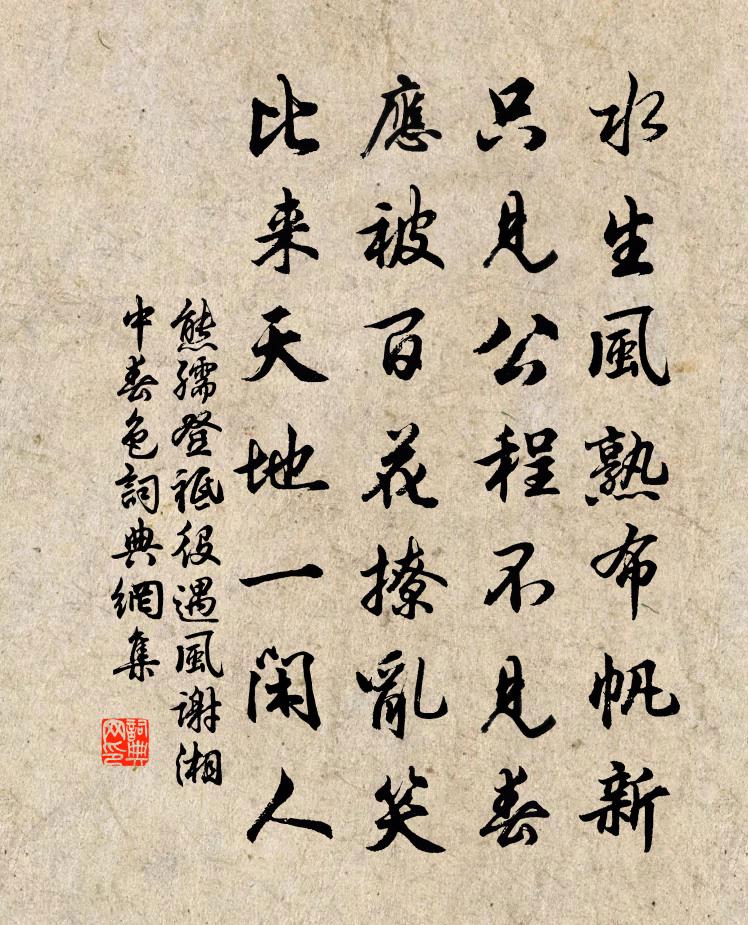 水生風熟布帆新
只見公程不見春
應被百花撩亂笑
比来天地一閑人
熊孺登祗役遇風谢湘
中春色詞典網集
詞典網印